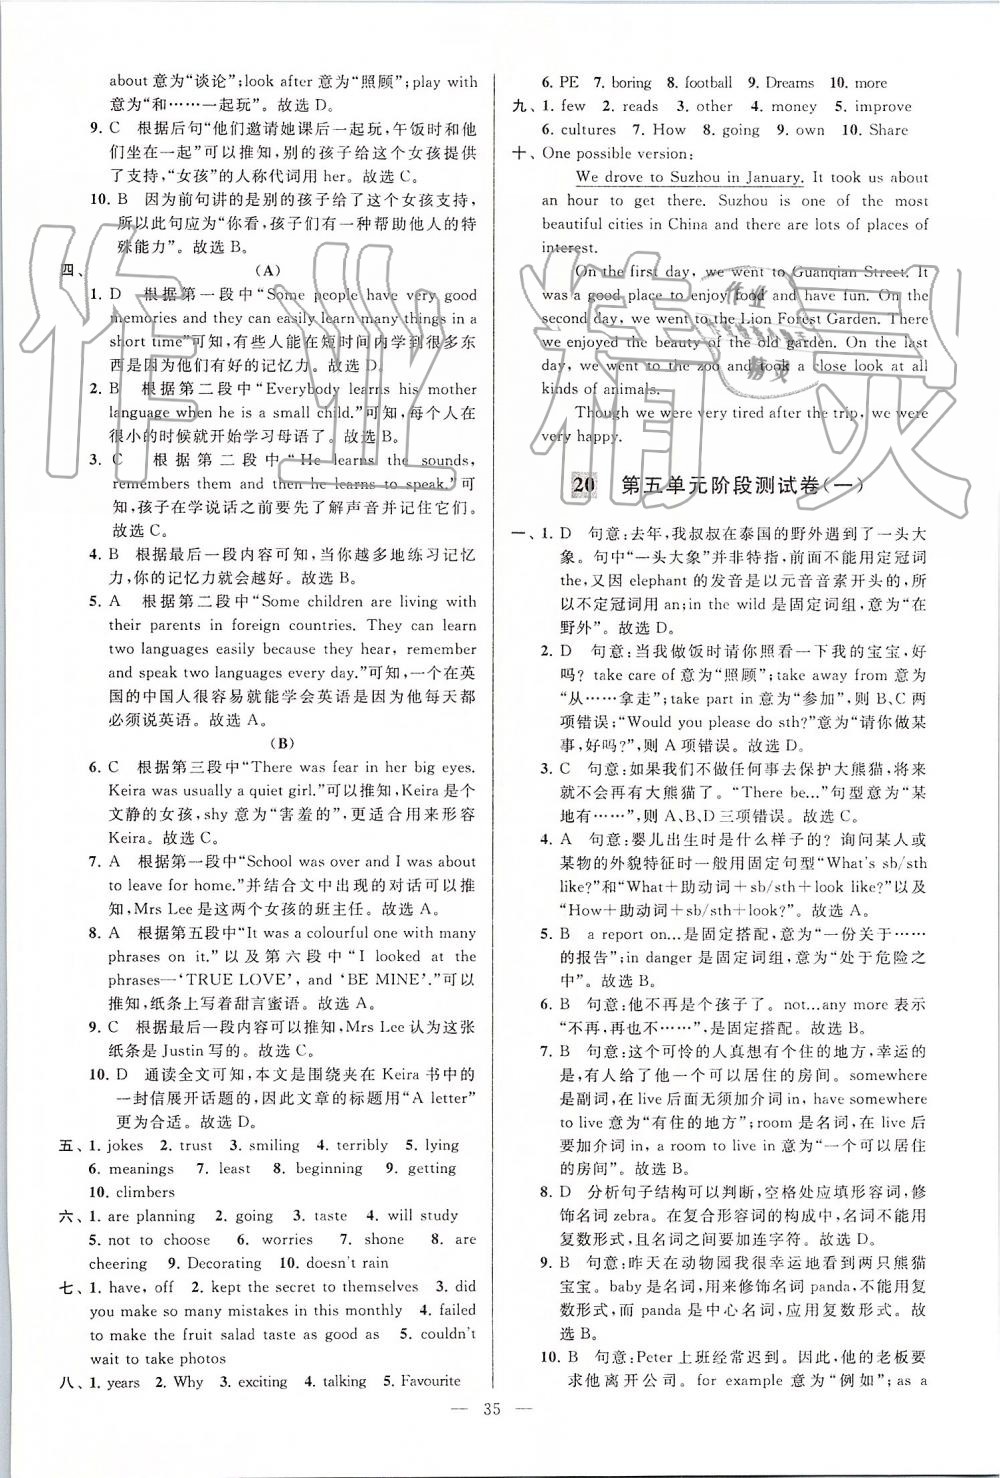 about 意为“谈论”;look after 意为“照顾”;play with
意为“和……一起玩”。故选 D。
9. C 根据后句“他们邀请她课后一起玩,午饭时和他
们坐在一起”可以推知,别的孩子给这个女孩提供
了支持,“女孩”的人称代词用 her。故选 C。
10. B 因为前句讲的是别的孩子给了这个女孩支持,
所以此句应为“你看,孩子们有一种帮助他人的特
殊能力”。故选 B。
四、 (A)
1. D 根据第一段中“Some people have very good
memories and they can easily learn many things in a
short time”可知,有些人能在短时间内学到很多东
西是因为他们有好的记忆力。故选 D。
2. B 根据第二段中“Everybody learns his mother
language when he is a small child.”可知,每个人在
很小的时候就开始学习母语了。故选 B。
3. C 根据第二段中“He learns the sounds,
remembers them and then he learns to speak.”可
知,孩子在学说话之前要先了解声音并记住它们。
故选 C。
4. B 根据最后一段内容可知,当你越多地练习记忆
力,你的记忆力就会越好。故选 B。
5. A 根据第二段中“Some children are living with
their parents in foreign countries. They can learn
two languages easily because they hear, remember
and speak two languages every day.”可知,一个在英
国的中国人很容易就能学会英语是因为他每天都
必须说英语。故选 A。
(B)
6. C 根据第三段中“There was fear in her big eyes.
Keira was usually a quiet girl.”可以推知,Keira 是个
文静的女孩,shy 意为“害羞的”,更适合用来形容
Keira。故选 C。
7. A 根据第一段中“School was over and I was about
to leave for home.”并结合文中出现的对话可以推
知,Mrs Lee 是这两个女孩的班主任。故选 A。
8. A 根据第五段中“It was a colourful one with many
phrases on it.”以及第六段中“I looked at the
phrases—‘TRUE LOVE’, and ‘BE MINE’.”可以
推知,纸条上写着甜言蜜语。故选 A。
9. C 根据最后一段内容可以推知,Mrs Lee 认为这张
纸条是 Justin 写的。故选 C。
10. D 通读全文可知,本文是围绕夹在 Keira 书中的
一封信展开话题的,因此文章的标题用“A letter”
更为合适。故选 D。
五、1. jokes 2. trust 3. smiling 4. terribly 5. lying
6. meanings 7. least 8. beginning 9. getting
10. climbers
六、1. are planning 2. going 3. taste 4. will study
5. not to choose 6. worries 7. shone 8. are
cheering 9. Decorating 10. doesn't rain
七、1. have, off 2. kept the secret to themselves 3. did
you make so many mistakes in this monthly 4. failed
to make the fruit salad taste as good as 5. couldn't
wait to take photos
八、1. years 2. Why 3. exciting 4. talking 5. Favourite
6. PE 7. boring 8. football 9. Dreams 10. more
九、1. few 2. reads 3. other 4. money 5. improve
6. cultures 7. How 8. going 9. own 10. Share
十、One possible version:
We drove to Suzhou in January. It took us about
an hour to get there. Suzhou is one of the most
beautiful cities in China and there are lots of places of
interest.
On the first day, we went to Guanqian Street. It
was a good place to enjoy food and have fun. On the
second day, we went to the Lion Forest Garden. There
we enjoyed the beauty of the old garden. On the last
day, we went to the zoo and took a close look at all
kinds of animals.
Though we were very tired after the trip, we were
very happy.
20 第五单元阶段测试卷(一)
一、1. D 句意:去年,我叔叔在泰国的野外遇到了一头大
象。句中“一头大象”并非特指,前面不能用定冠词
the,又因 elephant 的发音是以元音音素开头的,所
以不定冠词用 an;in the wild 是固定词组,意为“在
野外”。故选 D。
2. D 句意:当我做饭时请你照看一下我的宝宝,好
吗? take care of 意为“照顾”;take away from 意为
“从……拿走”;take part in 意为“参加”,B、C 两
项错误;“Would you please do sth?”意为“请你做某
事,好吗?”,则 A 项错误。故选 D。
3. C 句意:如果我们不做任何事去保护大熊猫,将来
就将没有大熊猫了。“There be...”句型意为“某
地有……”,则 A、B、D 三项错误。故选 C。
4. A 句意:婴儿出生时是什么样子的? 询问某人或
某物的外貌特征时一般用固定句型“What's sb/sth
like?”和“What+助动词+sb/sth+look like?”以及
“How+助动词+sb/sth+look?”。故选 A。
5. B a report on...是固定搭配,意为“一份关于……
的报告”;in danger 是固定词组,意为“处于危险之
中”。故选 B。
6. B 句意:他不再是个孩子了。not...any more 表示
“不再,再也不……”,是固定搭配。故选 B。
7. B 句意:这个可怜的人真想有个住的地方,幸运的
是,有人给了他一个可以居住的房间。somewhere
是副词,在后面无须加介词 in,have somewhere
to live 意为“有住的地方”;room 是名词,在 live 后
要加介词 in,a room to live in 意为“一个可以居住
的房间”。故选 B。
8. D 分析句子结构可以判断,空格处应填形容词,修
饰名词 zebra。在复合形容词的构成中,名词不能用
复数形式,且名词之间要加连字符。故选 D。
9. B 句意:昨天在动物园我很幸运地看到两只熊猫
宝宝。baby 是名词,用来修饰名词 panda,不能用复
数形式,而 panda 是中心名词,应用复数形式。故
选 B。
10. B 句意:Peter 上班经常迟到。因此,他的老板要
求他离开公司。for example 意为“例如”;as a
— 35 —
作业精灵
作业
精灵